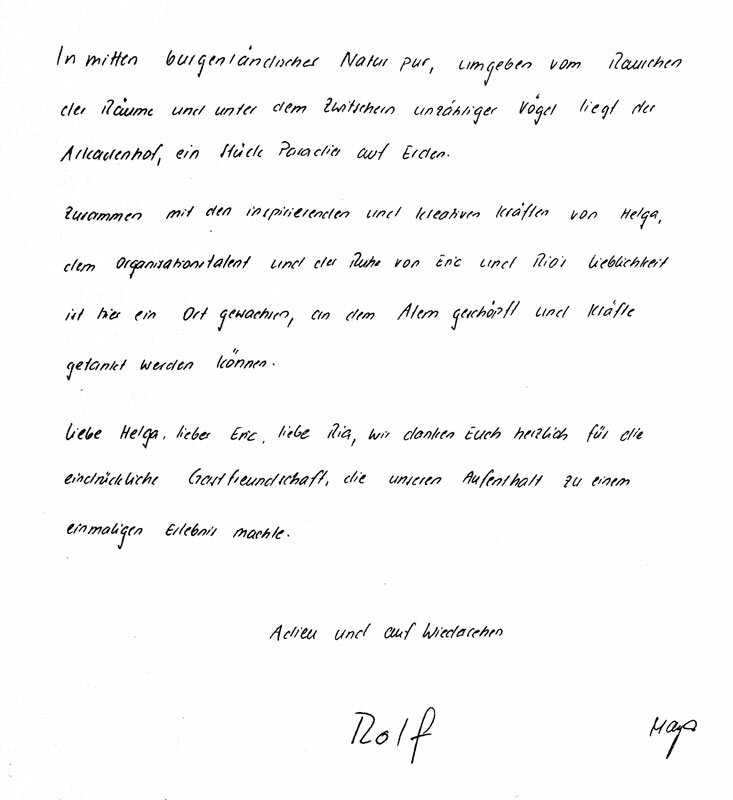 In mitten burgenländischer Natur pur, umgeben vom Rauschen
der Bäume und unter dem Zwitschern unzähliger Vögel liegt der
Arkadenhof, ein Stück Paradies auf Erden.
Zusammen mit den inspirierenden und kreativen Kräften von Helga,
dem Organisationstalent und der Ruhe von Eric und Ria's Lieblichkeit
ist hier ein Ort gewachsen, an dem Atem geschöpft und Kräfte
getankt werden können.
Liebe Helga, lieber Eric, liebe Ria, wir danken Euch herzlich für die
eindrückliche Gastfreundschaft, die unseren Aufenthalt zu einem
einmaligen Erlebnis machte.
Adieu und auf Wiedersehen
Rolf